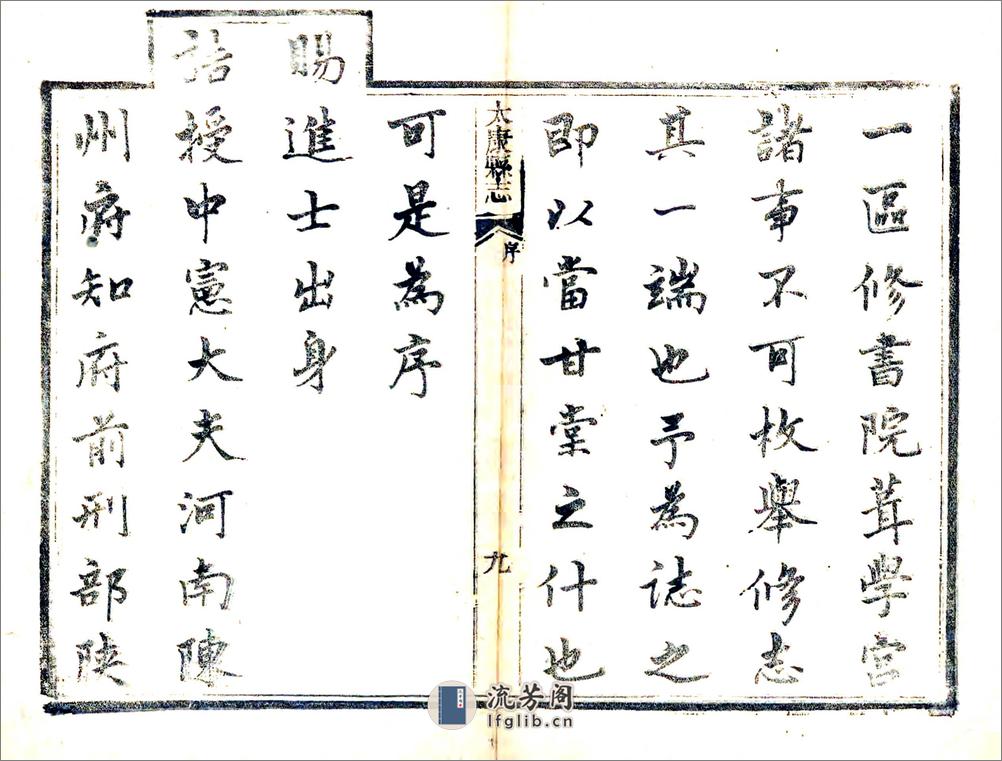 一區修書院葺學宮
諸事不可枚舉修志
其一端也予為誌之
即以當甘棠之什也
太康縣志
序
九
可是為序
賜進士出身
誥授中憲大夫河南陳
州府知府前刑部陝
流芳阁
lfglib.cn